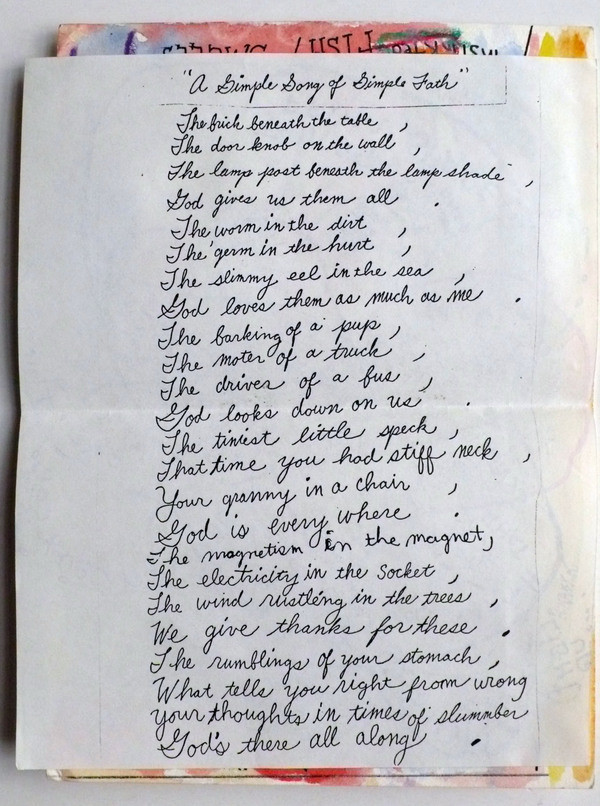 "A Simple Song of Simple Fath"
The brick beneath the table,
The door knob on the wall,
The lamp post beneath the lamp shade,
God gives us them all.
The worm in the dirt,
The germ in the hurt,
The slimmy eel in the sea,
God loves them as much as me.
The barking of a pup,
The moter of a truck,
The driver of a bus,
God looks down on us.
The tiniest little speck,
That time you had stiff neck,
Your granny in a chair,
God is every where.
The magnetism in the magnet,
The electricity in the Socket,
The wind rustleng in the trees,
We give thanks for these.
The rumblings of your stomach,
What tells you right from wrong
your thoughts in times of slummber
God's there all along.